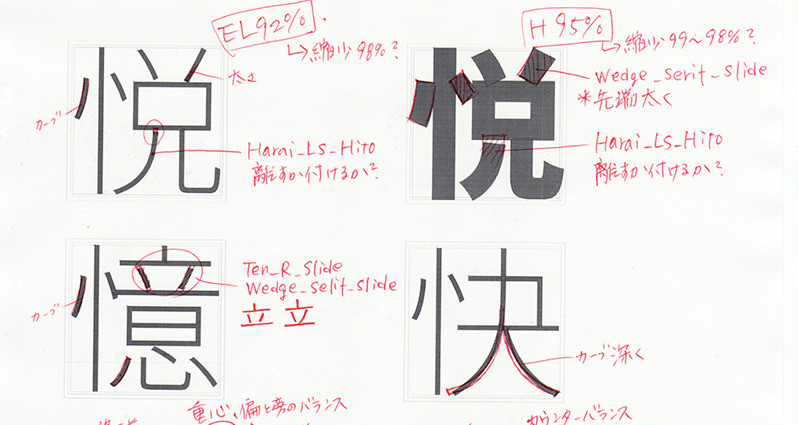 EL92%
↳縮少98%?
悦
太さ
カーブ
Harai_LS_Hito
離すか付けるか?
H95%
↳縮少99~98%?
悦
Wedge_serit_slide
*先端太く
Harai_LS_Hito
離すか付けるか?
憶
Ten_R_Slide
Wedge_selit_slide
立 立
カーブ
快
カーブ深く
重心、偏と旁のバランス
カウンターバランス